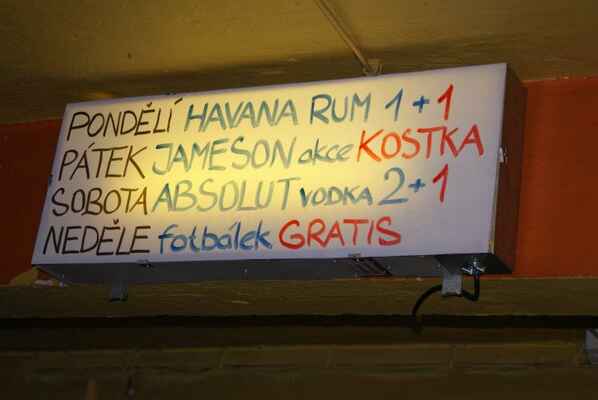 PONDĚLÍ HAVANA RUM 1+1
PÁTEK JAMESON akce KOSTKA
SOBOTA ABSOLUT VODKA 2+1
NEDĚLE fotbálek GRATIS